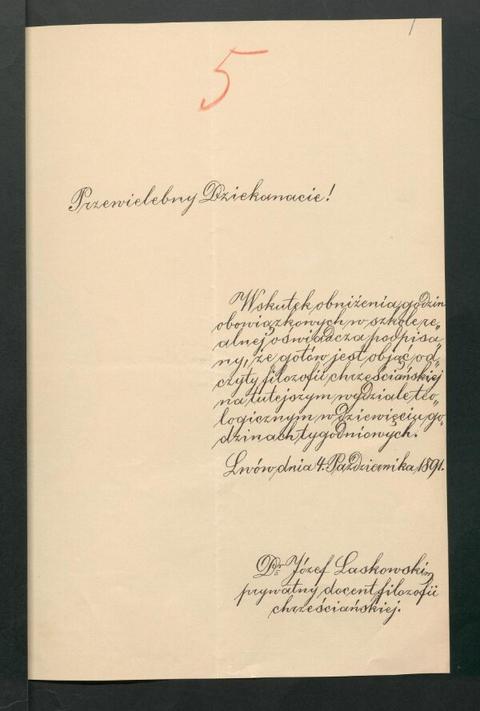 5
Przewielebny Dziekanacie!
Wskutek obniżenia godzin
obowiązkowych w szkole re„
alnej oświadcza podpisa„
ny, że gotów jest objąć od„
czyty filozofii chrześciańskiej
na tutejszym wydziale teo„
logicznym w dziewięciu go„
dzinach tygodniowych.
Lwów, dnia 4. Października, 1891.
Dr. Józef Laskowski,
prywatny docent filozofii
chrześciańskiej.